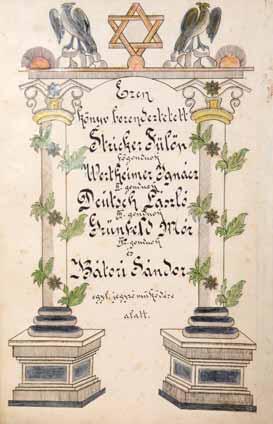 Ezen
könyv berendeztetett
Stricker Fülöp
főgondnok
Wertheimer Ignácz
II. gondnok
Deutsch László
III. gondnok
Grünfeld Mór
IV. gondnok
és
Bátori Sándor
egyl. jegyző működése
alatt.